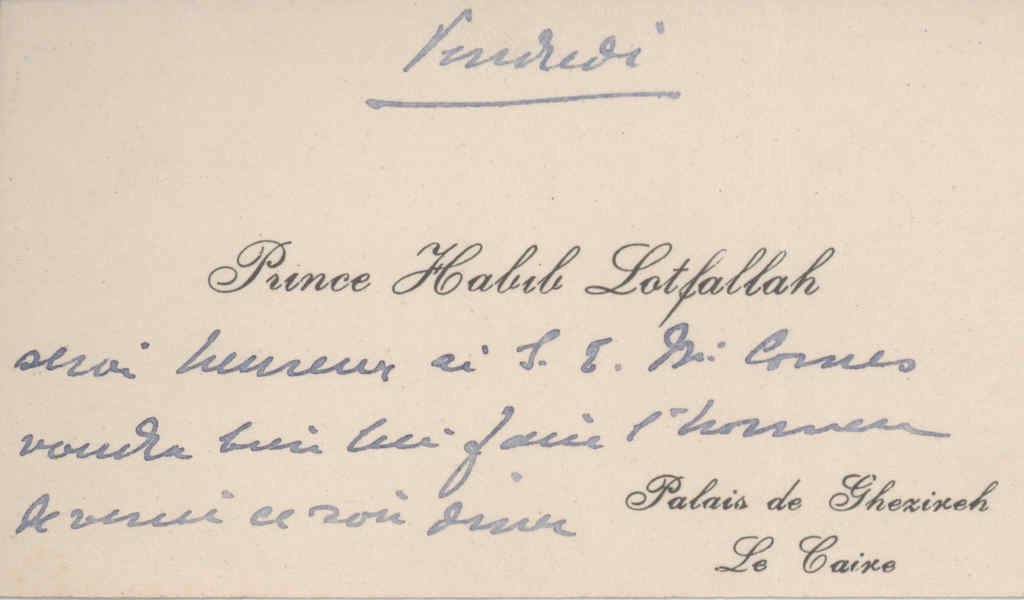 Vendredi
Prince Habib Lotfallah
serai heureux si S. E. Mr. Comes
voudra bien lui faire l'honneur
de venir ce soir diner
Palais de Ghezireh
Le Caire